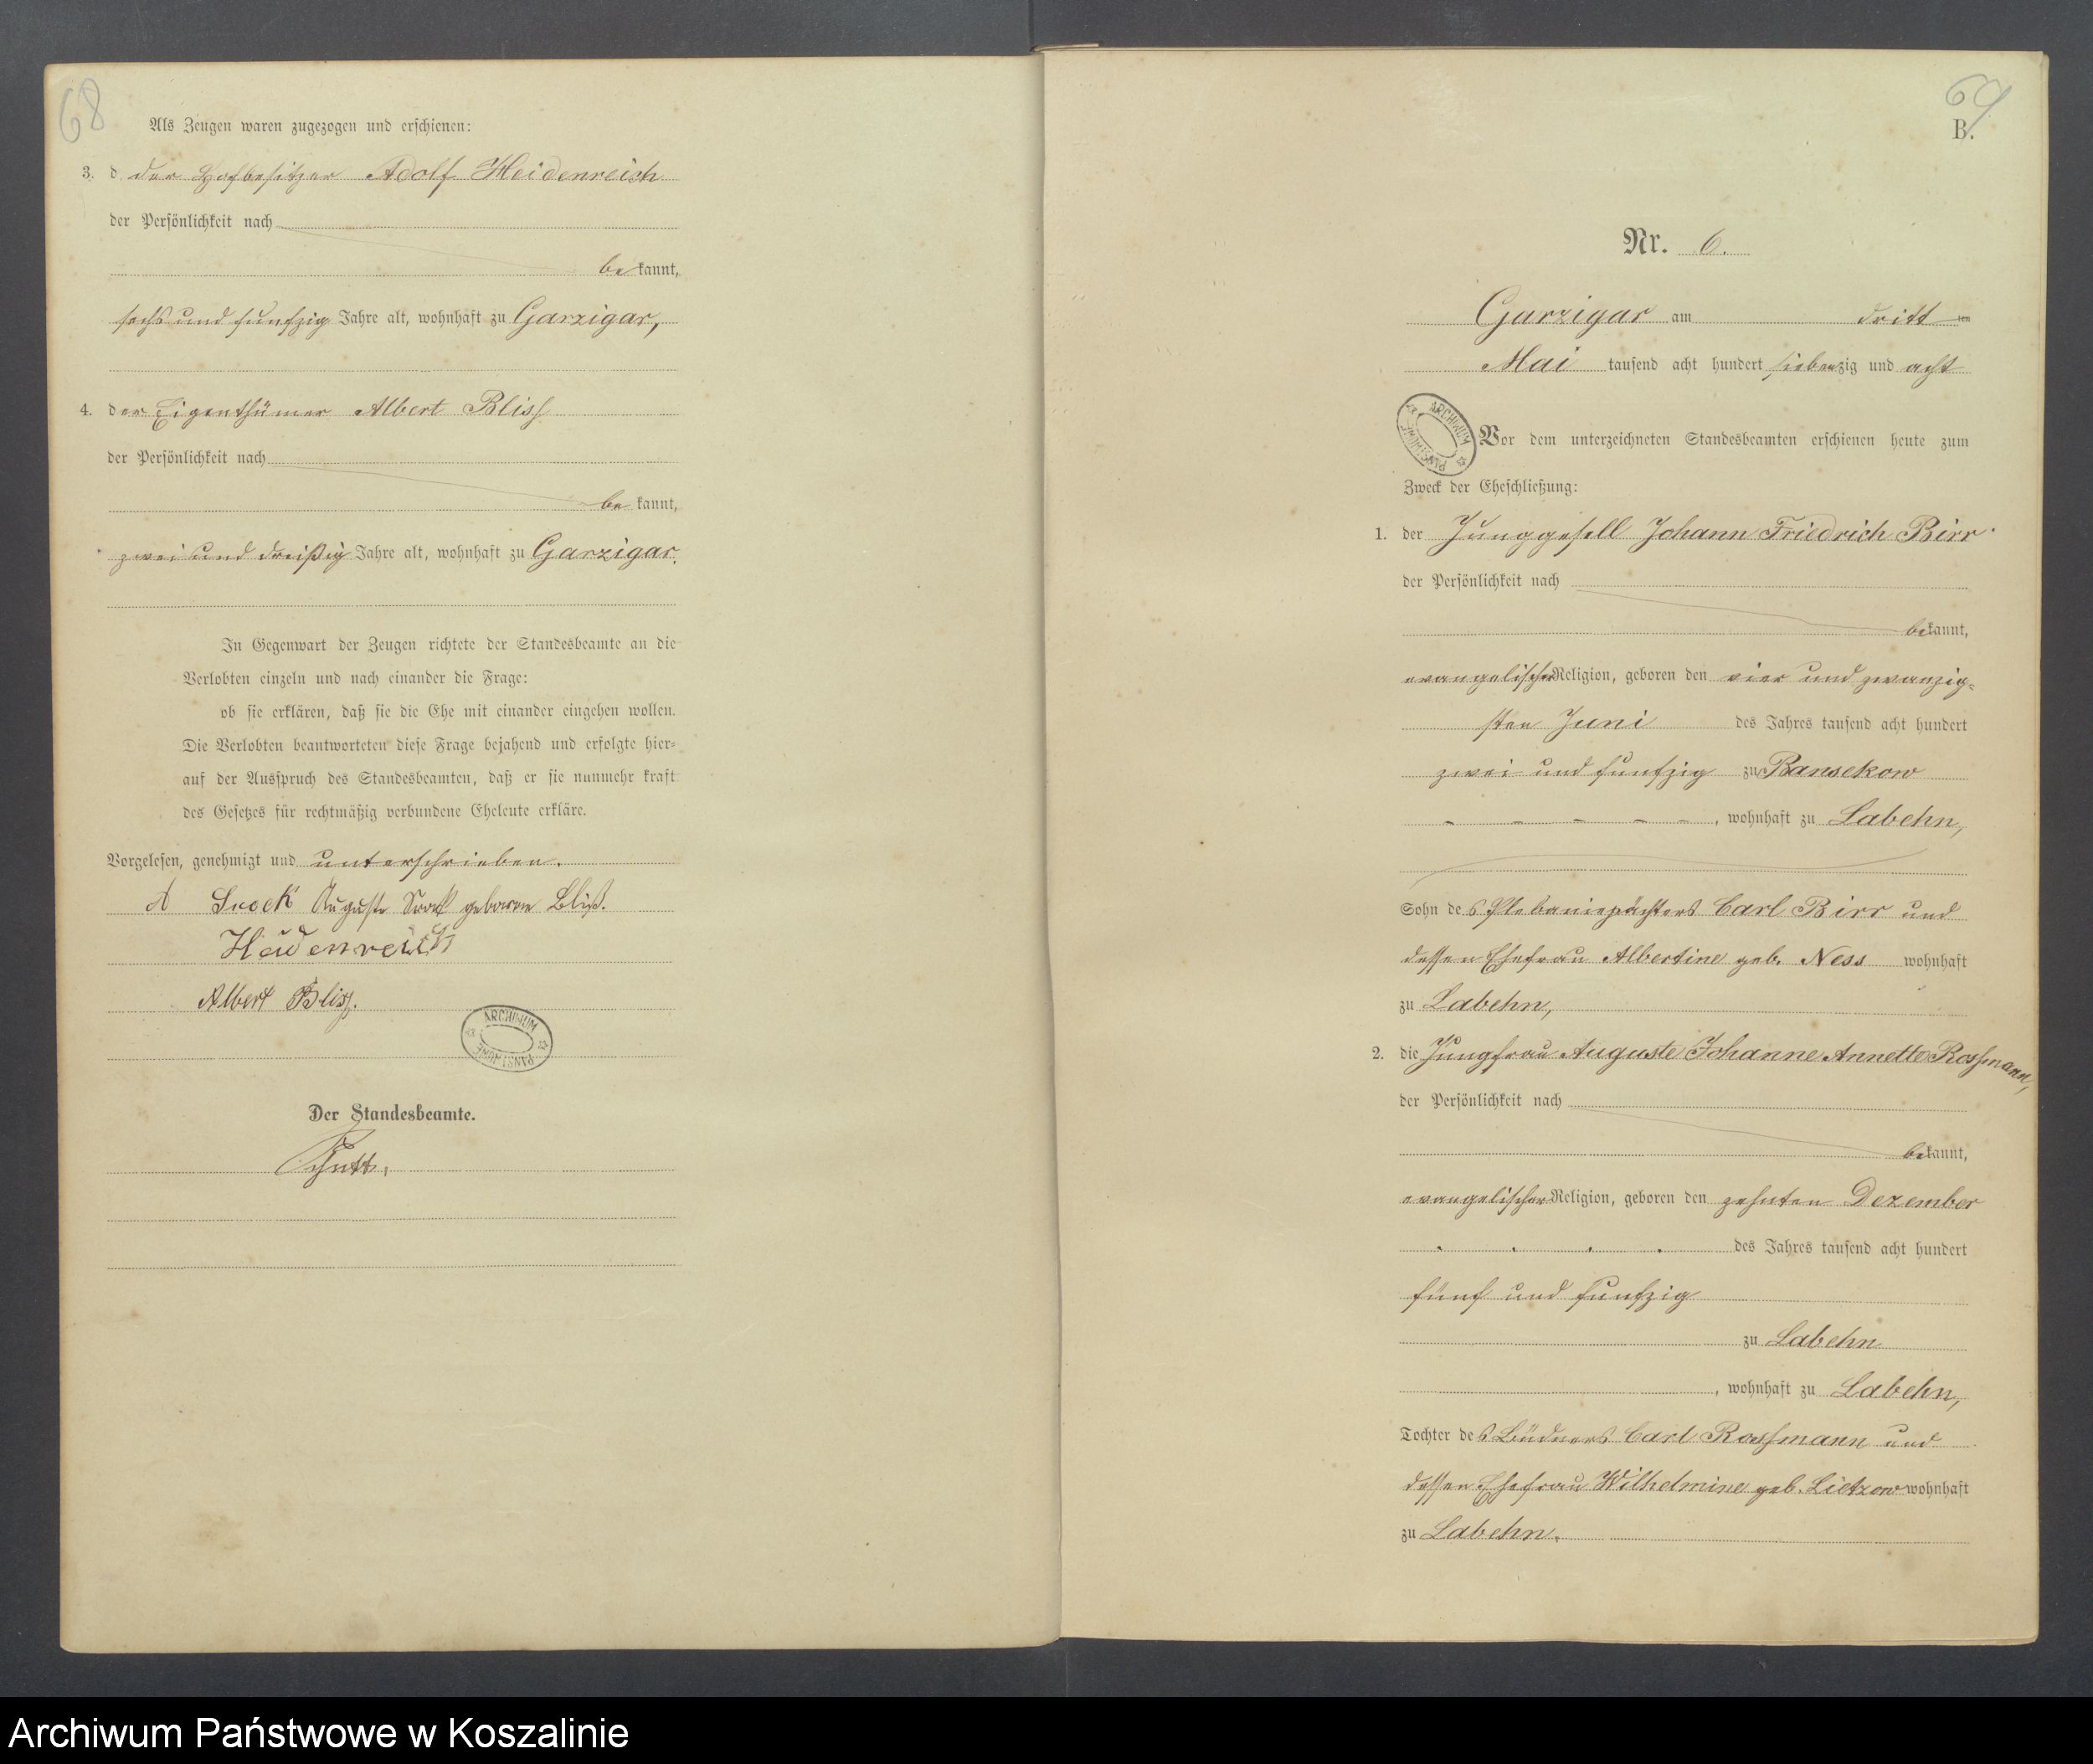 68
Als Zeugen waren zugezogen und erschienen:
3. d der Hofbesitzer Adolf Heidenreich
der Persönlichkeit nach
be kannt,
sechs und funfzig Jahre alt, wohnhaft zu Garzigar,
4. der Eigenthümer Albert Bliss
der Persönlichkeit nach
be kannt,
zwei und dreißig Jahre alt, wohnhaft zu Garzigar.
In Gegenwart der Zeugen richtete der Standesbeamte an die
Verlobten einzeln und nach einander die Frage:
ob sie erklären, daß sie die Ehe mit einander eingehen wollen.
Die Verlobten beantworteten diese Frage bejahend und erfolgte hier-
auf der Ausspruch des Standesbeamten, daß er sie nunmehr kraft
des Gesetzes für rechtmäßig verbundene Eheleute erkläre.
Vorgelesen, genehmigt und unterschrieben.
Auguste geborene Bliß.
Heidenreich
Albert Bliss.
ARCHIWUM PAŃSTWOWE
Der Standesbeamte.
69
B.
Nr. 6.
Garzigar am dritt ten
Mai tausend acht hundert siebenzig und acht
ARCHIWUM PAŃSTWOWE
Vor dem unterzeichneten Standesbeamten erschienen heute zum
Zweck der Eheschließung:
1. der Junggesell Johann Friedrich Birr
der Persönlichkeit nach
be kannt,
evangelischer Religion, geboren den vier und zwanzig-
sten Juni des Jahres tausend acht hundert
zwei und funfzig zu Bansekow
, wohnhaft zu Labehn,
Sohn des Plebaniepächters Carl Birr und
dessen Ehefrau Albertine geb. Ness wohnhaft
zu Labehn,
2. die Jungfrau Auguste Johanne Annette Rossmann,
der Persönlichkeit nach
be kannt,
evangelischer Religion, geboren den zehnten Dezember
des Jahres tausend acht hundert
fünf und funfzig
zu Labehn
, wohnhaft zu Labehn,
Tochter des Büdners Carl Rossmann und
dessen Ehefrau Wilhelmine geb. Lietzow wohnhaft
zu Labehn.
Archiwum Państwowe w Koszalinie